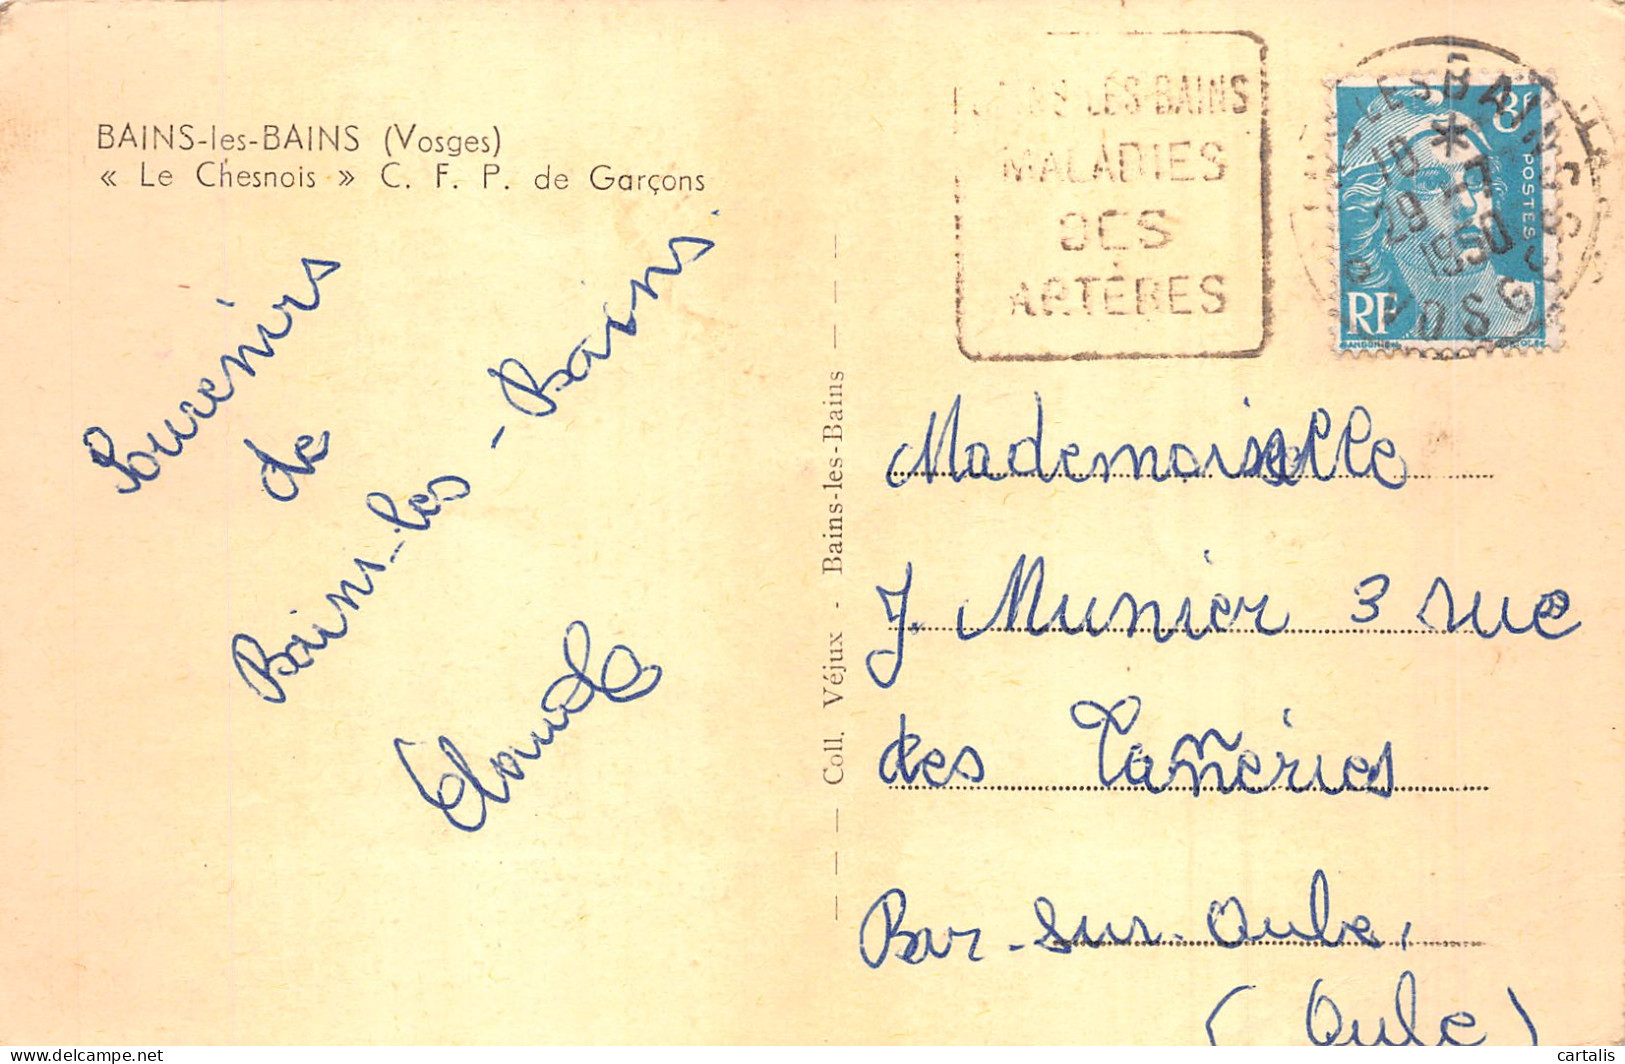 BAINS-les-BAINS (Vosges)
« Le Chesnois » C. F. P. de Garçons
Souvenirs
de
Bains-les-Bains.
Claude
Coll. Véjux - Bains-les-Bains
BAINS-LES-BAINS
MALADIES
DES
ARTÈRES
BAINS-LES-BAINS
18 *
29 -7
1950
VOSGES
3F
POSTES
RF
GANDON
Mademoiselle
J. Munier 3 rue
des Tanneries
Bar-sur-Aube,
(Aube)
cartalis